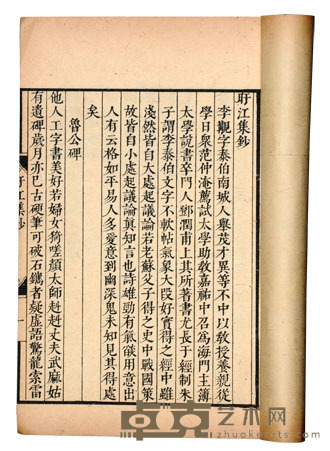 盱江集鈔
李覯字泰伯南城人舉茂才異等不中以敎授養親從
學日衆范仲淹薦試太學助敎嘉祐中召爲海門主簿
太學說書卒門人鄧潤甫上其所著書尤長于經制朱
子謂李泰伯文字不軟帖氣象大段好實得之經中雖
淺然皆自大處起議論若老蘇父子得之史中戰國策
故皆自小處起議論眞知言也詩雄勁有氣燄用意出
人有云格如平易人多愛意到幽深鬼未知見其得處
矣
魯公碑
他人工字書美好若婦女猗嗟顏太師赳赳丈夫武麻姑
有遺碑歲月亦已古硬筆可破石鐫者疑虛語驚龍索雷
盱江集鈔
一
艺术网